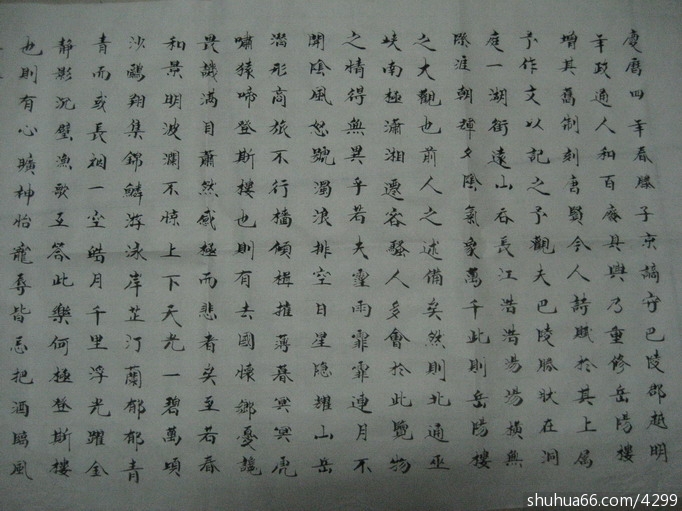 慶曆四年春滕子京謫守巴陵郡越明
年政通人和百廢具興乃重修岳陽樓
增其舊制刻唐賢今人詩賦於其上屬
予作文以記之予觀夫巴陵勝狀在洞
庭一湖銜遠山吞長江浩浩湯湯橫無
際涯朝暉夕陰氣象萬千此則岳陽樓
之大觀也前人之述備矣然則北通巫
峽南極瀟湘遷客騷人多會於此覽物
之情得無異乎若夫霪雨霏霏連月不
開陰風怒號濁浪排空日星隐耀山岳
潛形商旅不行檣傾楫摧薄暮冥冥虎
嘯猿啼登斯樓也則有去國懷鄉憂讒
畏譏滿目蕭然感極而悲者矣至若春
和景明波瀾不惊上下天光一碧萬頃
沙鷗翔集錦鱗游泳岸芷汀蘭郁郁青
青而或長烟一空皓月千里浮光躍金
靜影沉璧漁歌互答此樂何極登斯樓
也則有心曠神怡寵辱皆忘把酒臨風
shuhua66.com/4299